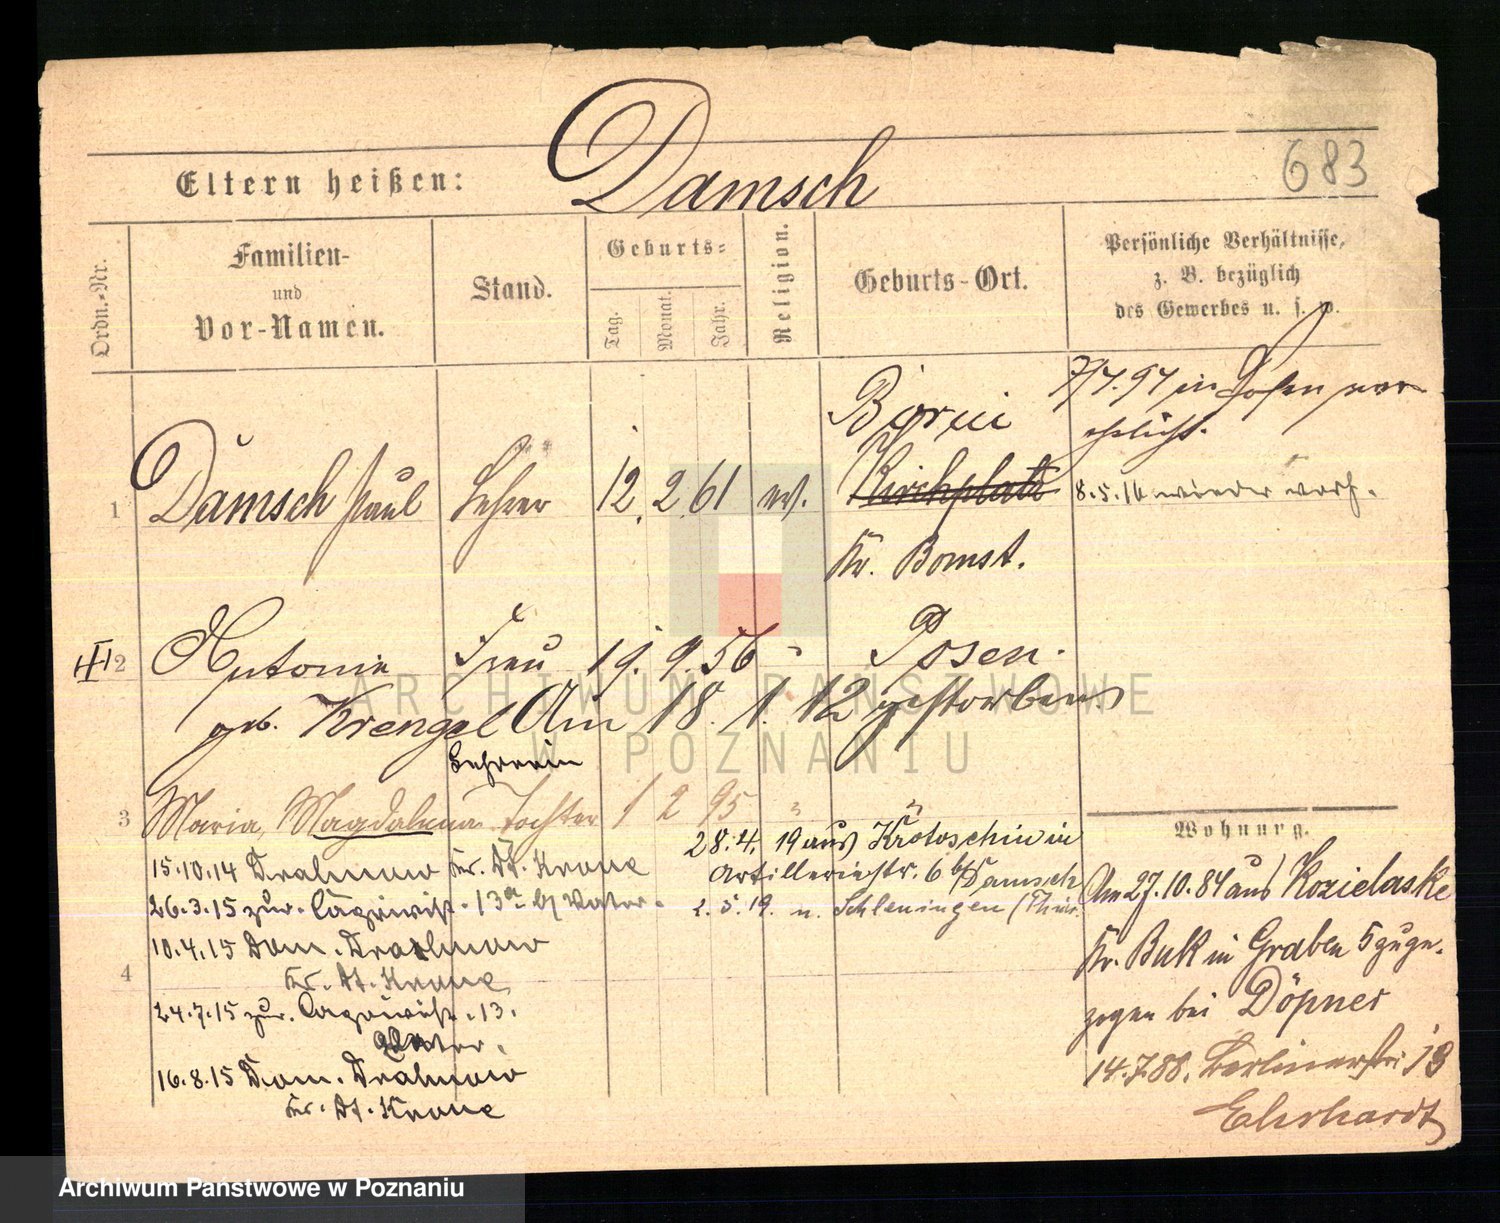 683
Eltern heißen: Damsch
Ordn.-Nr.
Familien-
und
Vor-Namen.
Stand.
Geburts-
Tag.
Monat.
Jahr.
Religion.
Geburts-Ort.
Persönliche Verhältnisse,
z. B. bezüglich
des Gewerbes u. s. w.
7/7.97 in Posen ver-
ehelicht.
1 Damsch Paul Lehrer 12. 2. 61 ev.
Kirchplatz
Kr. Bomst.
8.5.16 wieder verh.
2 Antonie Frau 19. 9. 56 " Posen.
geb. Krengel Am 18. 1. 12 gestorben
Lehrerin
3 Maria, Magdalena Tochter 1 2 95 " "
28.4.19 aus Krotoschin in
Artilleriestr. 6 b/Damsch
2.5.19. n. Schleusingen (Thür.
15.10.14 Kr. Dt. Krone
26.3.15 zur. 13a b/ Vater.
10.4.15 Dom.
4
Kr. Dt. Krone
24.7.15 zur. 13.
Vater.
16.8.15 Dom.
Kr. Dt. Krone
Wohnung.
Am 27.10.84 aus Kozielaske
Kr. Buk in Graben 5 zuge-
zogen bei Döpner
14.7.88. Berlinerstr. 13
Ehrhardt
ARCHIWUM PAŃSTWOWE
W POZNANIU
Archiwum Państwowe w Poznaniu